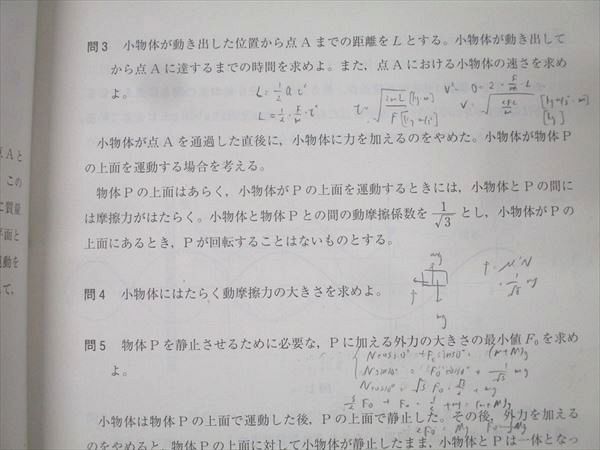 問3 小物体が動き出した位置から点Aまでの距離をLとする。小物体が動き出して
から点Aに達するまでの時間を求めよ。また，点Aにおける小物体の速さを求め
よ。
L = 1/2 a t²
小物体が点Aを通過した直後に，小物体に力を加えるのをやめた。小物体が物体P
の上面を運動する場合を考える。
物体Pの上面はあらく，小物体がPの上面を運動するときには，小物体とPの間に
は摩擦力がはたらく。小物体と物体Pとの間の動摩擦係数を 1/√3 とし，小物体がPの
上面にあるとき，Pが回転することはないものとする。
mg
f = μ'N
1/√3 mg
問4 小物体にはたらく動摩擦力の大きさを求めよ。
mg
問5 物体Pを静止させるために必要な，Pに加える外力の大きさの最小値F₀を求め
よ。
小物体は物体Pの上面で運動した後，Pの上面で静止した。その後，外力を加える
のをやめると，物体Pの上面に対して小物体が静止したまま，小物体とPは一体となっ
点Aと
この
に質量
平面と
運動を
て，